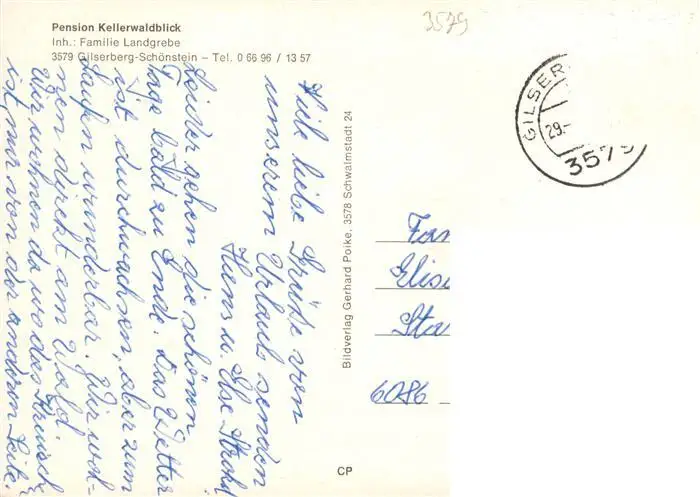 Pension Kellerwaldblick
Inh.: Familie Landgrebe
3579 Gilserberg-Schönstein – Tel. 0 66 96 / 13 57
3579
GILSER
29.-
3579
Viele liebe Grüße von
unserem Urlaub senden
Hans u. Else
Leider gehen die schönen
Tage bald zu Ende. Das Wetter
ist durchwachsen, aber zum
Laufen wunderbar. Wir woh-
nen direkt am Wald
Wir wohnen da wo das Kreuzch
ist, nur von der anderen Seite.
Bildverlag Gerhard Poike, 3578 Schwalmstadt 24
Fam
Elis
Sta
6086
CP